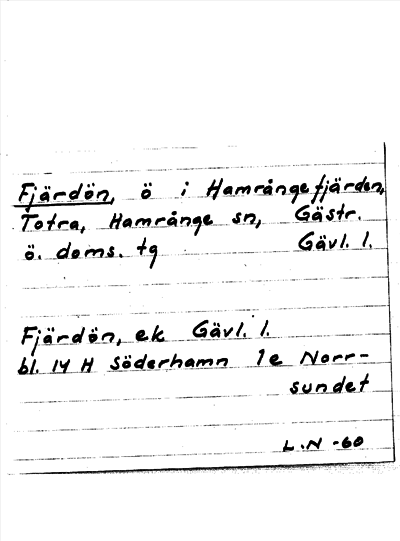 Fjärdön, ö i Hamrångefjärden,
Totra, Hamrånge sn, Gästr.
ö. doms. tg Gävl. l.
Fjärdön, ek Gävl. l.
bl. 14 H Söderhamn 1e Norr-
sundet
L.N -60